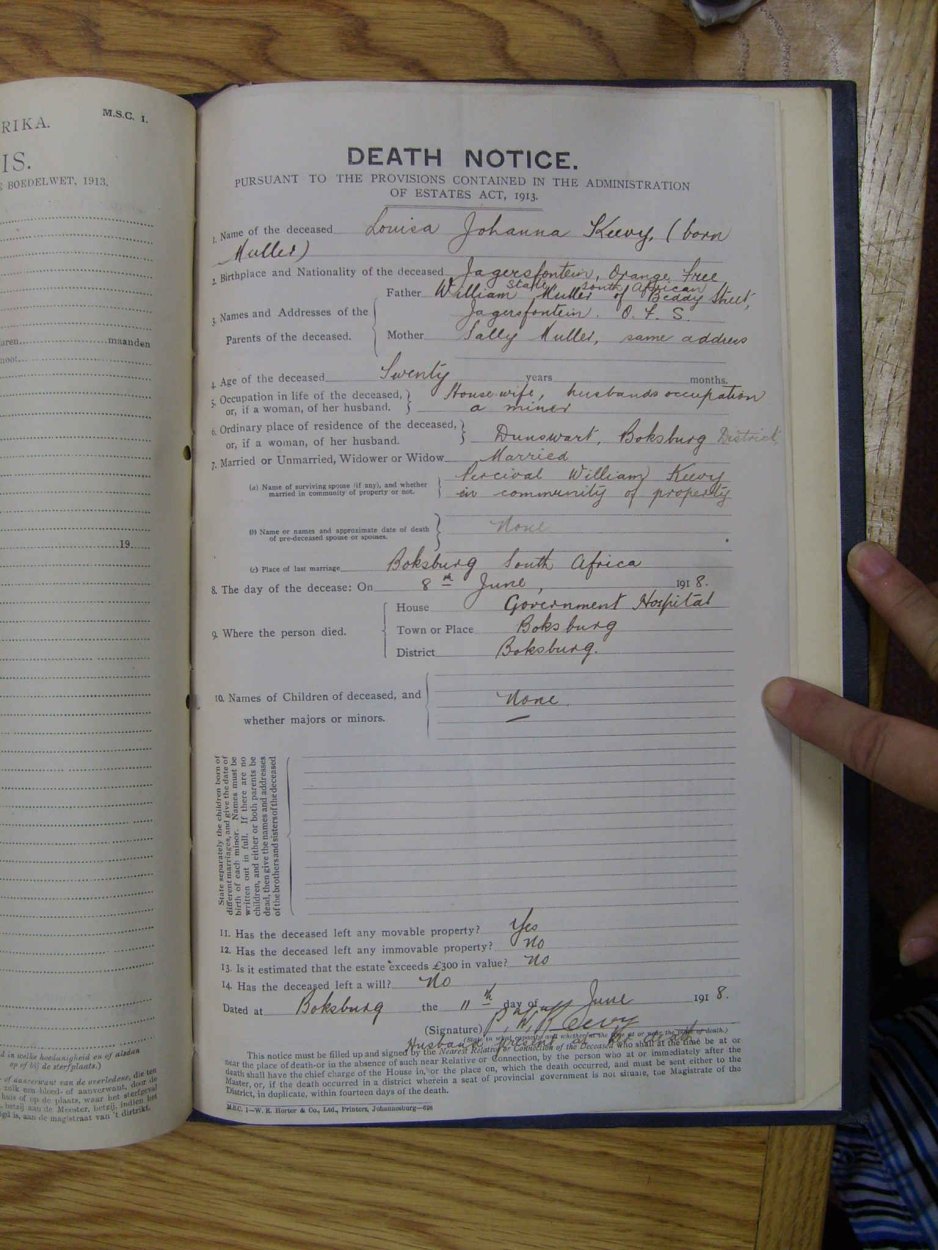 RIKA.
M.S.C. 1.
IS.
BOEDELWET, 1913.
maanden
19
DEATH NOTICE.
PURSUANT TO THE PROVISIONS CONTAINED IN THE ADMINISTRATION
OF ESTATES ACT, 1913.
1. Name of the deceased Louisa Johanna Keevy, (born
Muller)
2. Birthplace and Nationality of the deceased Jagersfontein, Orange Free
State South African
3. Names and Addresses of the Parents of the deceased.
Father William Muller of Beddy Street,
Jagersfontein. O. F. S.
Mother Sally Muller, same address
4. Age of the deceased Twenty years months.
5. Occupation in life of the deceased, Housewife, husbands occupation
or, if a woman, of her husband. a miner
6. Ordinary place of residence of the deceased,
or, if a woman, of her husband. Dunswart, Boksburg District
7. Married or Unmarried, Widower or Widow Married
(a) Name of surviving spouse (if any), and whether Percival William Keevy
married in community of property or not. in community of property
(b) Name or names and approximate date of death None
of pre-deceased spouse or spouses.
(c) Place of last marriage Boksburg South Africa
8. The day of the decease: On 8th June, 1918.
House Government Hospital
9. Where the person died. Town or Place Boksburg
District Boksburg.
10. Names of Children of deceased, and None.
whether majors or minors.
State separately the children born of
different marriages, and give the date of
birth of each minor. Names must be
written out in full. If there are no
children, and either or both parents be
dead, then give the names and addresses
of the brothers and sisters of the deceased
11. Has the deceased left any movable property? Yes
12. Has the deceased left any immovable property? No
13. Is it estimated that the estate exceeds £300 in value? No
14. Has the deceased left a will? No
Dated at Boksburg the 11th day of June 1918.
(Signature) P. W. Keevy
Husband present at the death
This notice must be filled up and signed by the Nearest Relative or Connection of the Deceased who shall at the time be at or
near the place of death or in the absence of such near Relative or Connection, by the person who at or immediately after the
death shall have the chief charge of the House in, or the place on, which the death occurred, and must be sent either to the
Master, or, if the death occurred in a district wherein a seat of provincial government is not situate, the Magistrate of the
District, in duplicate, within fourteen days of the death.
M.S.C. 1—W. E. Hortor & Co., Ltd., Printers, Johannesburg—